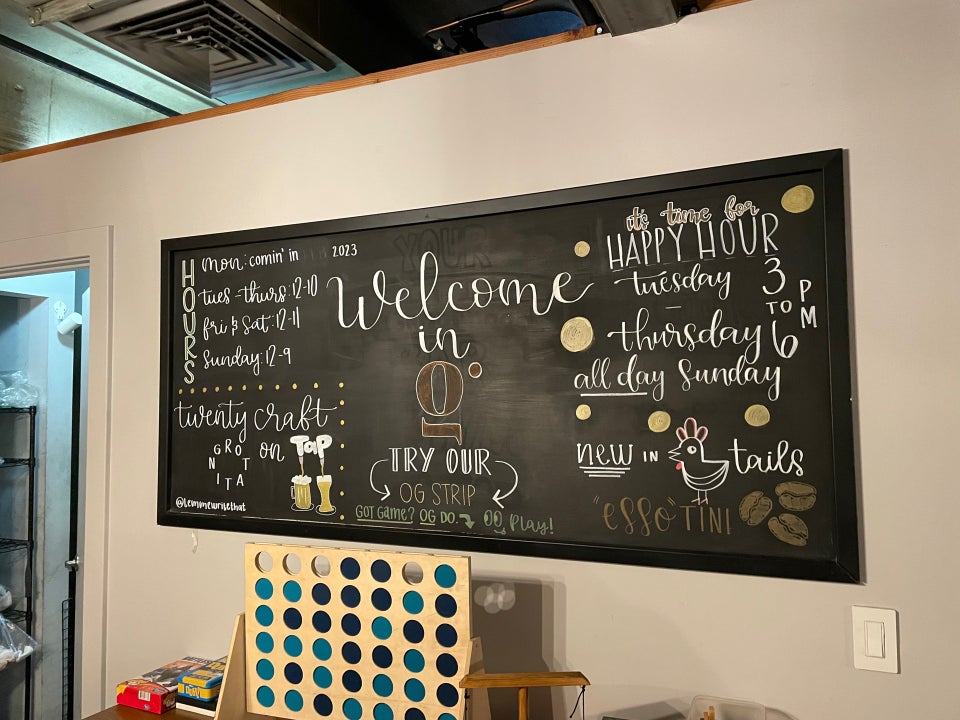 HOURS
Mon: comin' in 2023
tues - thurs: 12-10
fri & Sat: 12-11
Sunday: 12-9
twenty craft
on TAP
@lemmewritethat
YOUR
Welcome
in
TRY OUR
OG STRIP
GOT Game? OG DO. GO Play!
it's time for
HAPPY HOUR
tuesday
-
thursday
3
TO
6
PM
all day Sunday
new IN tails
"esso"TINI